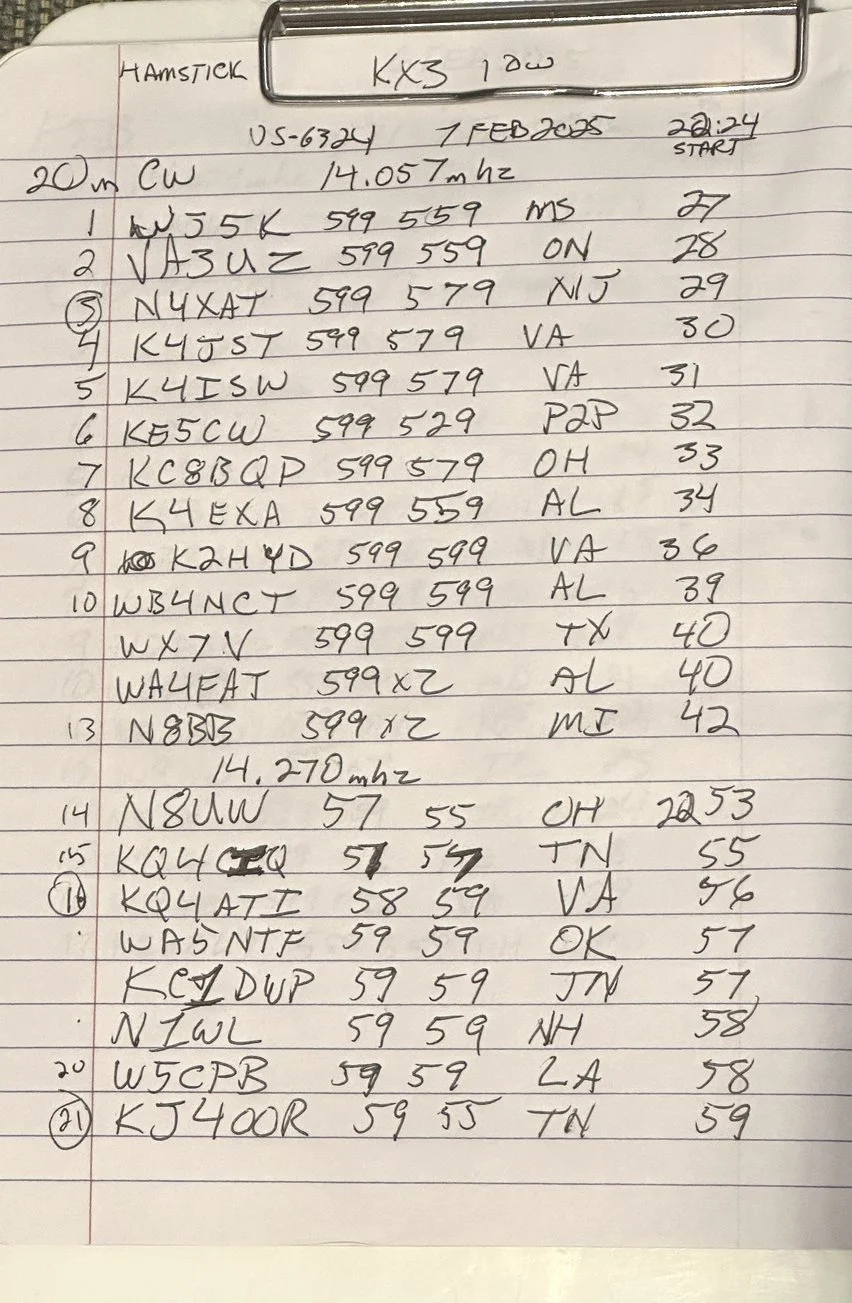 HAMSTICK KX3 10W
US-6324 7 FEB 2025 22:24
START
20m CW 14.057mhz
1 WJ5K 599 559 MS 27
2 VA3UZ 599 559 ON 28
3 N4XAT 599 579 NJ 29
4 K4JST 599 579 VA 30
5 K4ISW 599 579 VA 31
6 KE5CW 599 529 P2P 32
7 KC8BQP 599 579 OH 33
8 K4EXA 599 559 AL 34
9 K2HYD 599 599 VA 36
10 WB4NCT 599 599 AL 39
WX7V 599 599 TX 40
WA4FAT 599 x2 AL 40
13 N8BB 599 x2 MI 42
14.270mhz
14 N8UW 57 55 OH 2253
15 TN 55
16 KQ4ATI 58 59 VA 56
WA5NTF 59 59 OK 57
KC1DWP 59 59 TN 57
N1WL 59 59 NH 58
20 W5CPB 59 59 LA 58
21 KJ4OOR 59 55 TN 59